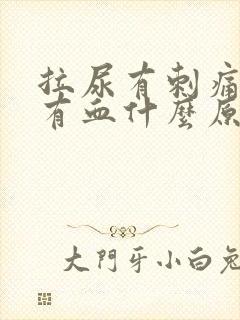 拉尿有刺痛
有血什麼原
大門牙小白兔